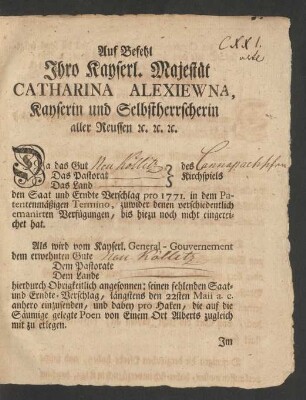 CXXI.
Auf Befehl
Ihro Kayserl. Majestät
CATHARINA ALEXIEWNA,
Kayserin und Selbstherrscherin
aller Reussen ꝛc. ꝛc. ꝛc.
Da das Gut Neu Kölliz des Cannapaehschen
Das Pastorat Kirchspiels
Das Land
den Saat und Erndte Verschlag pro 1771. in dem Pa-
tentenmäßigen Termino, zuwider denen verschiedentlich
emanirten Verfügungen, bis hiezu noch nicht eingerei-
chet hat.
Als wird vom Kayserl. General-Gouvernement
dem erwehnten Gute Neu Kölletz
Dem Pastorate
Dem Lande
hierdurch Obrigkeitlich angesonnen: seinen fehlenden Saat-
und Erndte-Verschlag, längstens den 22sten Maii a. c.
anhero einzusenden, und dabey pro Haken, die auf die
Säumige gelegte Poen von Einem Ort Alberts zugleich
mit zu erlegen.
Im